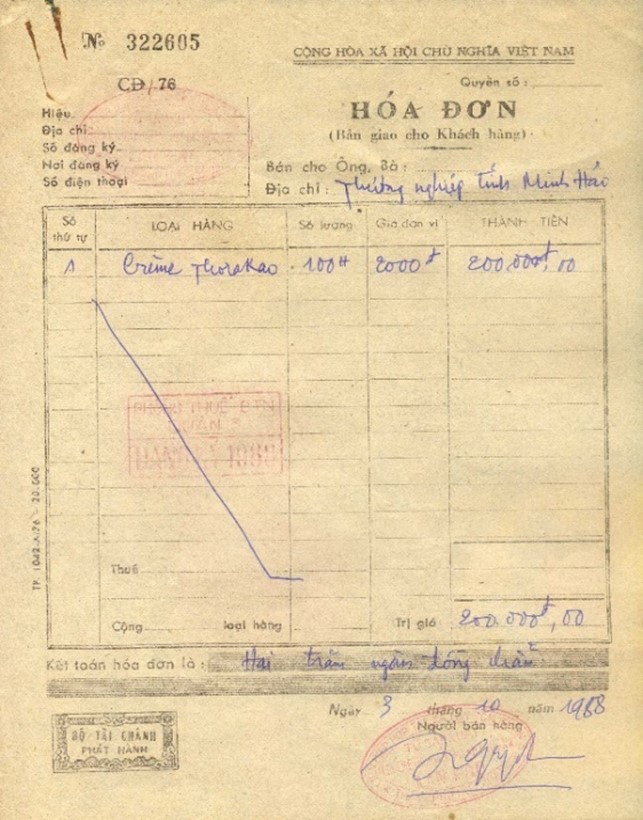 Nº 322605
CỘNG HÒA XÃ HỘI CHỦ NGHĨA VIỆT NAM
CĐ/76
Quyển số :
Hiệu
Địa chỉ
Số đăng ký
Nơi đăng ký
Số điện thoại
HÓA ĐƠN
(Bản giao cho Khách hàng)
Bán cho Ông, Bà :
Địa chỉ : Thương nghiệp tỉnh Minh Hải
Số thứ tự LOẠI HÀNG Số lượng Giá đơn vị THÀNH TIỀN
1 Crème Thorakao 100H 2000đ 200.000đ,00
PHÒNG THUẾ CTN
QUẬN
1988
Thuế
Cộng loại hàng Trị giá 200.000đ,00
TP. 1042-A-76 - 20.000
Kết toán hóa đơn là : Hai trăm ngàn đồng chẵn
Ngày 3 tháng 10 năm 1988
Người bán hàng
BỘ TÀI CHÁNH
PHÁT HÀNH